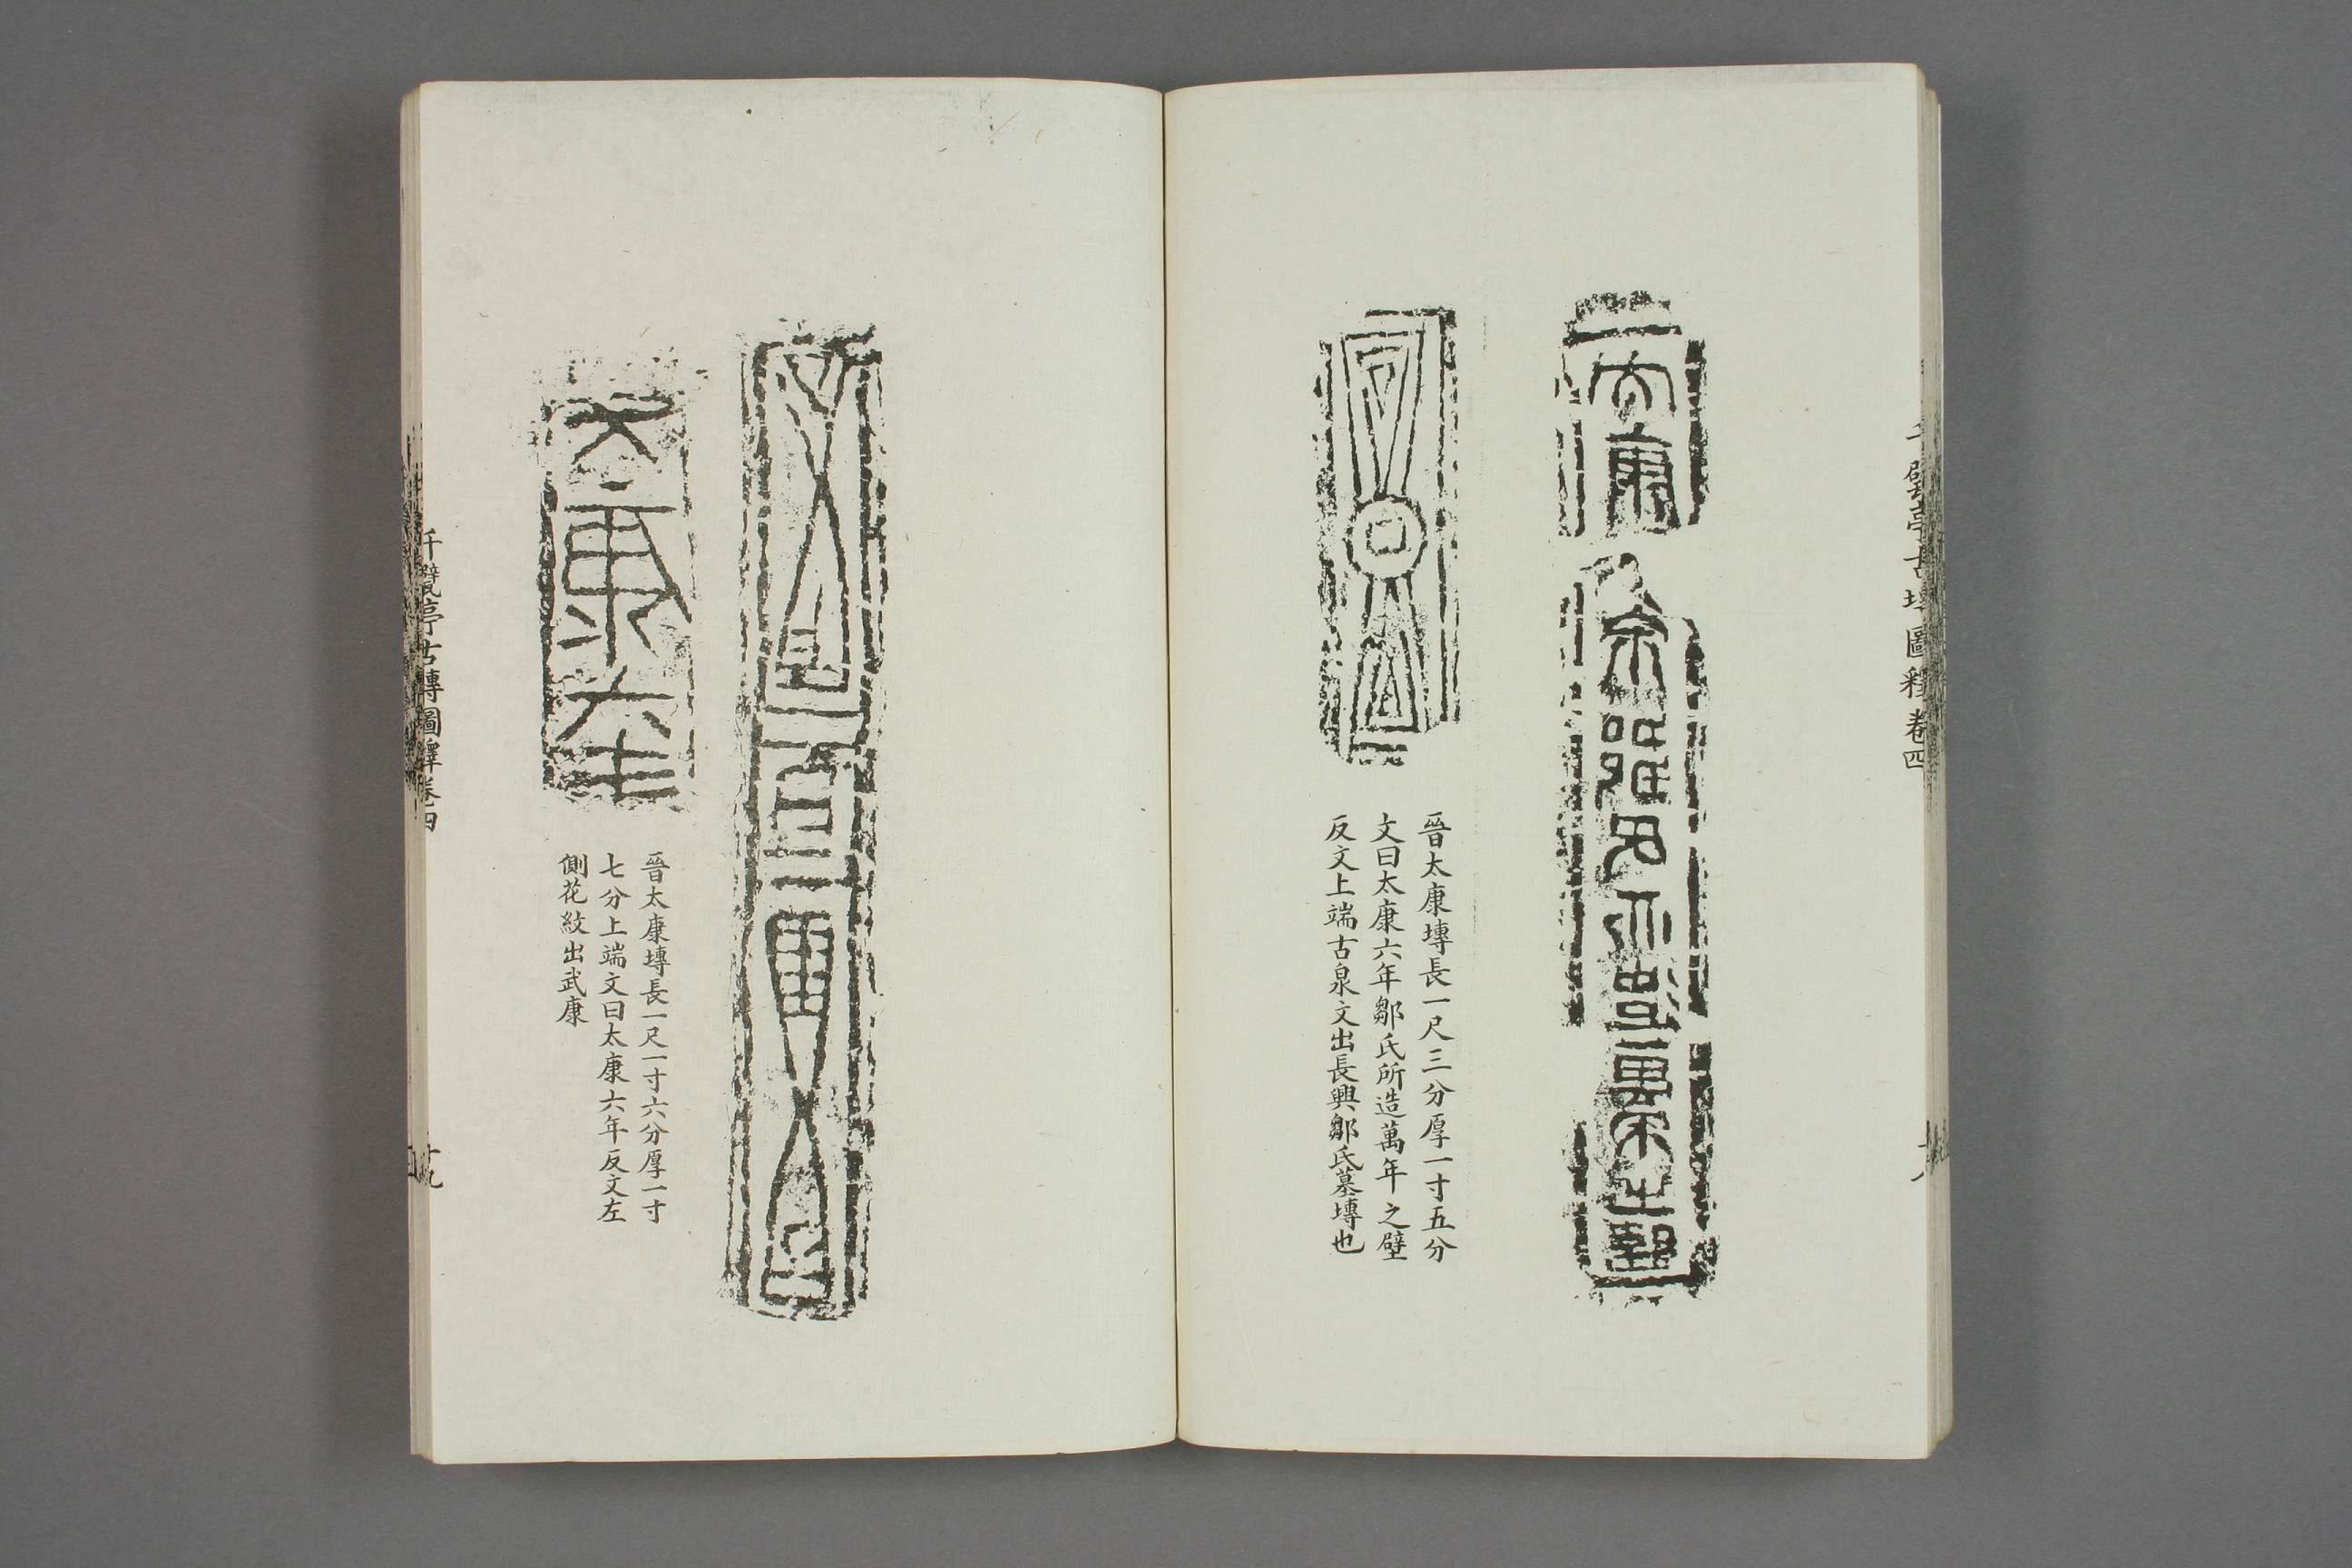 千甓亭古塼圖釋卷四
晉太康塼長一尺三分厚一寸五分
文曰太康六年鄒氏所造萬年之壁
反文上端古泉文出長興鄒氏墓塼也
太康六年
晉太康塼長一尺一寸六分厚一寸
七分上端文曰太康六年反文左
側花紋出武康
千甓亭古塼圖釋卷四
十九